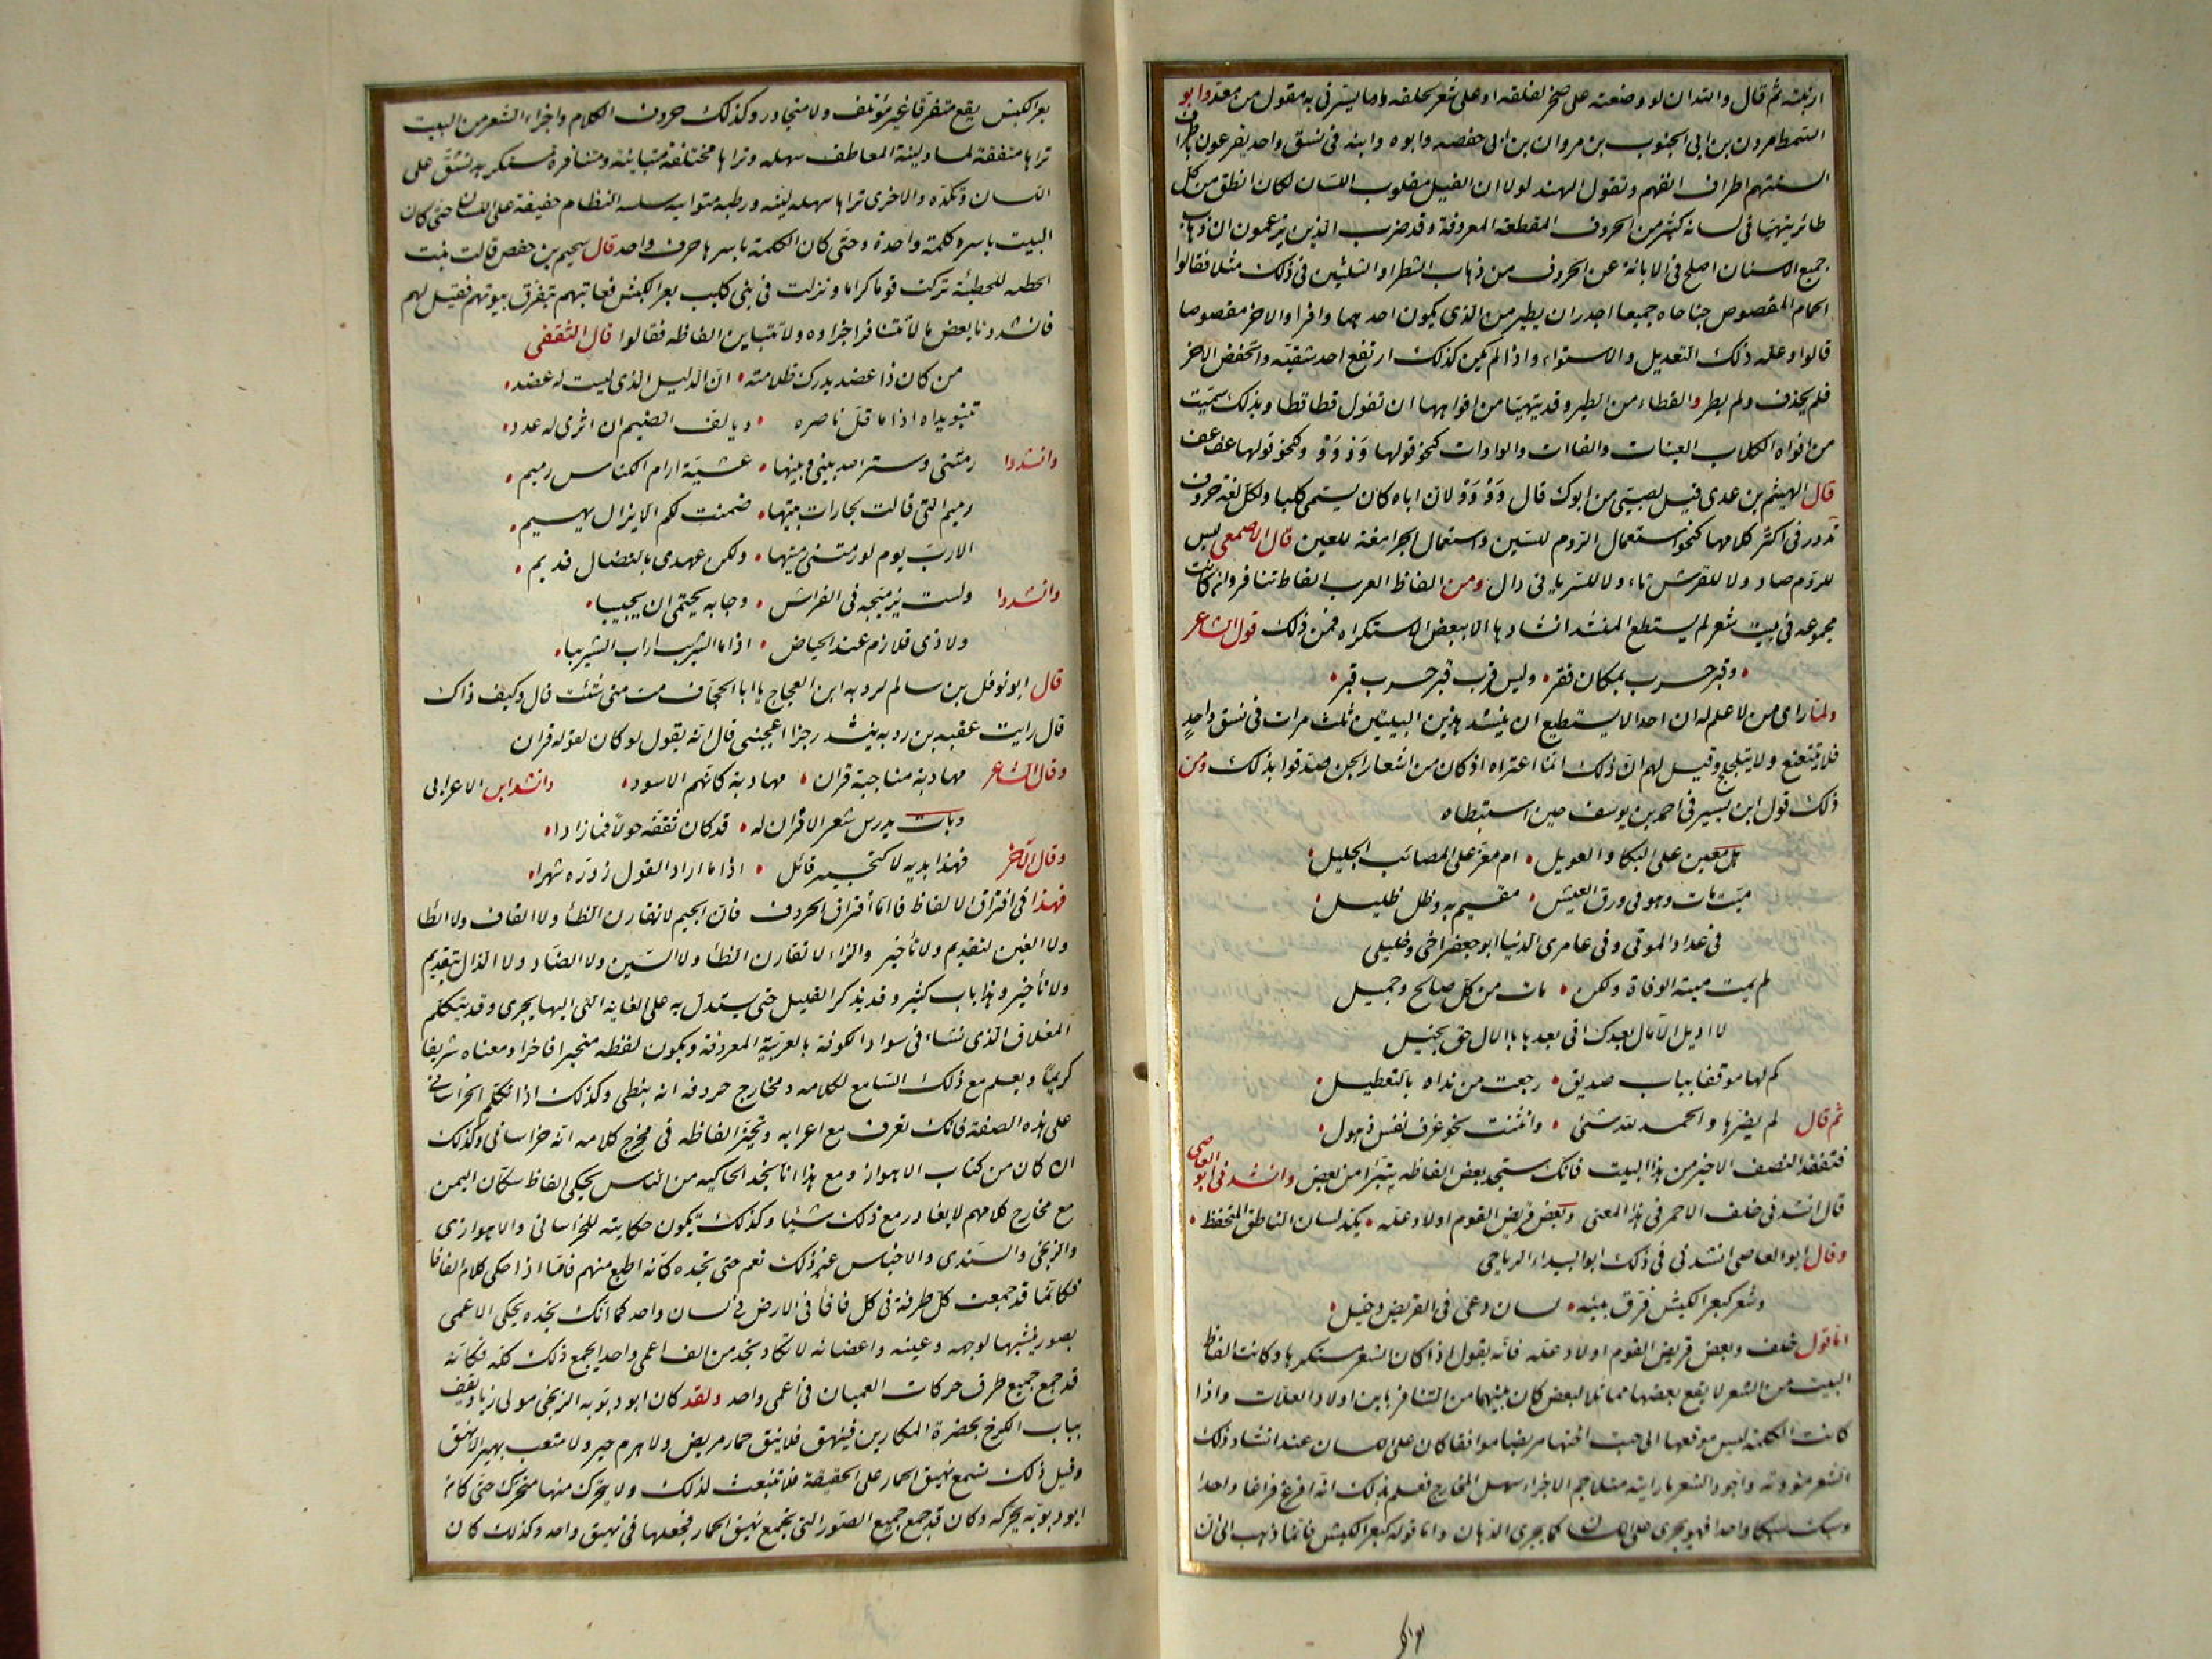 ارنبته ثم قال والله ان لو وضعته على صخر لفلقه او على شعر لحلقه وما يسرني به مقول من معد وابو
السمط مروان بن ابي الجنوب بن مروان بن ابي حفصه وابوه وابنه في نسق واحد يقرعون باطراف
السنتهم اطراف انفهم وتقول الهند لولا ان الفيل مقلوب اللسان لكان انطق من كل
طائر يتهيا في لسانه كثير من الحروف المقطعة المعروفة وقد ضرب الذين يزعمون ان ذهاب
جميع الاسنان اصلح في الابانة عن الحروف من ذهاب الشطر او الثلثين في ذلك مثلا فقالوا
الحمام المقصوص جناحاه جميعا اجدر ان يطير من الذي يكون احدهما وافرا والاخر مقصوصا
قالوا وعله ذلك التعديل والاستواء واذا لم يكن كذلك ارتفع احد شقيه وانخفض الاخر
فلم يجذف ولم يطر والقطاء من الطير وقد يتهيا من افواهها ان تقول قطا قطا وبذلك سميت
من افواه الكلاب العينات والفاات والواوات كنحو قولها وَوْ وَوْ وكنحو قولها عف عف
قال الهيثم بن عدى قيل لصبي من ابوك قال وَوْ وَوْ لان اباه كان يسمى كلبا ولكل لغة حروف
تدور في اكثر كلامها كنحو استعمال الروم للسين واستعمال الجرامقة للعين قال الاصمعي ليس
للروم صاد ولا للفرس ثاء ولا للسرياني ذال ومن الفاظ العرب الفاظ تتنافر وان كانت
مجموعه في بيت شعر لم يستطع المنشد انشادها الا ببعض الاستكراه فمن ذلك قول الشاعر
وقبر حرب بمكان قفر • وليس قرب قبر حرب قبر •
ولما راى من لا علم له ان احدا لا يستطيع ان ينشد هذين البيتين ثلث مرات في نسق واحدٍ
فلا يتتعتع ولا يتلجلج وقيل لهم ان ذلك انما اعتراه اذ كان من اشعار الجن صدقوا بذلك ومن
ذلك قول ابن يسير في احمد بن يوسف حين استبطاه
هل معين على البكا والعويل • ام معز على المصائب الجليل •
ميت مات وهو في ورق العيش • مقيم به وظل ظليل •
في عداد الموتى وفي عامري الدنيا ابو جعفر اخي وخليلي
لم يمت ميتة الوفاة ولكن • مات من كل صالح وجميل
لا اذيل الآمال بعدك اني بعدها بالآمال حق بخيل
كم لها موقفا بباب صديق • رجعت من نداه بالتعطيل •
ثم قال لم يضرها والحمد لله شئ • وانثنت نحو عزف نفس ذهول •
فتفقد النصف الاخير من هذا البيت فانك ستجد بعض الفاظه يتبرا من بعض وانشدني ابو العاصي
قال انشدني خلف الاحمر في هذا المعنى وبعض قريض القوم اولاد علة • يكد لسان الناطق المتحفظ •
وقال ابو العاصي انشدني في ذلك ابو البيداء الرياحي
وشعر كبعر الكبش فرّق بينه • لسان دعي في القريض دخيل •
اما قول خلف وبعض قريض القوم اولاد علة فانه يقول اذا كان الشعر مستكرها وكانت الفاظ
البيت من الشعر لا يقع بعضها مماثلا لبعض كان بينهما من التنافر ما بين اولاد العلات واذا
كانت الكلمة ليس موقعها الى جنب اختها مرضيا موافقا كان على اللسان عند انشاد ذلك
الشعر مؤونة واجود الشعر ما رايته متلاحم الاجزاء سهل المخارج فتعلم بذلك انه افرغ فراغا واحدا
وسبك سبكا واحدا فهو يجري على اللسان كما يجري الدهان واما قوله كبعر الكبش فانما ذهب الى ان
بعر الكبش يقع متفرقا غير مؤتلف ولا متجاور وكذلك حروف الكلام واجزاء الشعر من البيت
تراها متفقة لمسا ولينة المعاطف سهله وتراها مختلفة متباينة ومتنافرة مستكرهه تشق على
اللسان وتكده والاخرى تراها سهله لينه ورطبه متواتيه سلسه النظام خفيفة على اللسان حتى كان
البيت باسره كلمة واحدة وحتى كان الكلمة باسرها حرف واحد قال سحيم بن حفص قالت بنت
الحطيئه للحطيئة تركت قوما كراما ونزلت في بني كليب بعر الكبش فعابتهم بتفرق بيوتهم فقيل لهم
فانشدونا بعض ما لا تتنافر اجزاوه ولا تتباين الفاظه فقالوا قال الثقفي
من كان ذا عضد يدرك ظلامته • ان الذليل الذي ليست له عضد •
تنبو يداه اذا ما قل ناصره • ويانف الضيم ان اثرى له عدد •
وانشدوا رمتني وستر الله بيني وبينها • عشيّة ارام الكناس رميم •
رميم التي قالت لجارات بيتها • ضمنت لكم الا يزال يهيم •
الا رب يوم لو رمتني رميتها • ولكن عهدي بالنضال قديم •
وانشدوا ولست بزميجة في الفراش • وجابه يحتمى ان يجيبا •
ولا ذي قلازم عند الحياض • اذا ما الشريب اراب الشريبا •
قال ابو نوفل بن سالم لروبه ابن العجاج يا ابا الجحاف مت متى شئت قال وكيف ذاك
قال رايت عقبه بن روبه ينشد رجزا اعجبني قال انه يقول لو كان لقوله قران
وقال الشاعر مهاذبة مناجبة قران • مهاذبة كانهم الاسود • وانشد ابن الاعرابي
وبات يدرس شعر الاقران له • قد كان ثقفه حولا فما زادا •
وقال الآخر فهذا بديه لا كتحبير قائل • اذا ما اراد القول زوّره شهرا •
فهذا في اقتران الالفاظ فاما اقتران الحروف فان الجيم لا تقارن الظا ولا القاف ولا الطا
ولا الغين لتقديم ولا تأخير والزاء لا تقارن الظا ولا السين ولا الضاد ولا الذال بتقديم
ولا تأخير وهذا باب كثير وقد يذكر القليل حتى يستدل به على الغاية التي اليها يجرى وقد يتكلم
المغلاق الذي نشاء في سواد الكوفة بالعربية المعروفة ويكون لفظه متخيرا فاخرا ومعناه شريفا
كريما ويعلم مع ذلك السامع لكلامه ومخارج حروفه انه نبطي وكذلك اذا تكلم الخراساني
على هذه الصفة فانك تعرف مع اعرابه وتخير الفاظه في مخرج كلامه انه خراساني وكذلك
ان كان من كتاب الاهواز ومع هذا انا نجد الحاكيه من الناس يحكي الفاظ سكان اليمن
مع مخارج كلامهم لا يغادر مع ذلك شيئا وكذلك تكون حكايته للخراساني والاهوازى
والزنجي والسندى والاجناس غير ذلك نعم حتى تجده كانه اطبع منهم فاما اذا حكى كلام الفافا
فكانما قد جمعت كل طرفة في كل فافا في الارض في لسان واحد كما انك تجده يحكى الاعمى
بصور ينشيها لوجهه وعينيه واعضائه لا تكاد تجد من الف اعمى واحد ايجمع ذلك كله فكانه
قد جمع جميع طرف حركات العميان في اعمى واحد ولقد كان ابو دبوبه الزنجي مولى زياد يقف
بباب الكرخ بحضرة المكارين فينهق فلا يبقى حمار مريض ولا هرم حسير ولا متعب بهير الا نهق
وقبل ذلك تسمع نهيق الحمار على الحقيقة فلا تنبعث لذلك ولا يتحرك منها متحرك حتى كان
ابو دبوبه يحركه وكان قد جمع جميع الصور التي تجمع نهيق الحمار فجعلها في نهيق واحد وكذلك كان